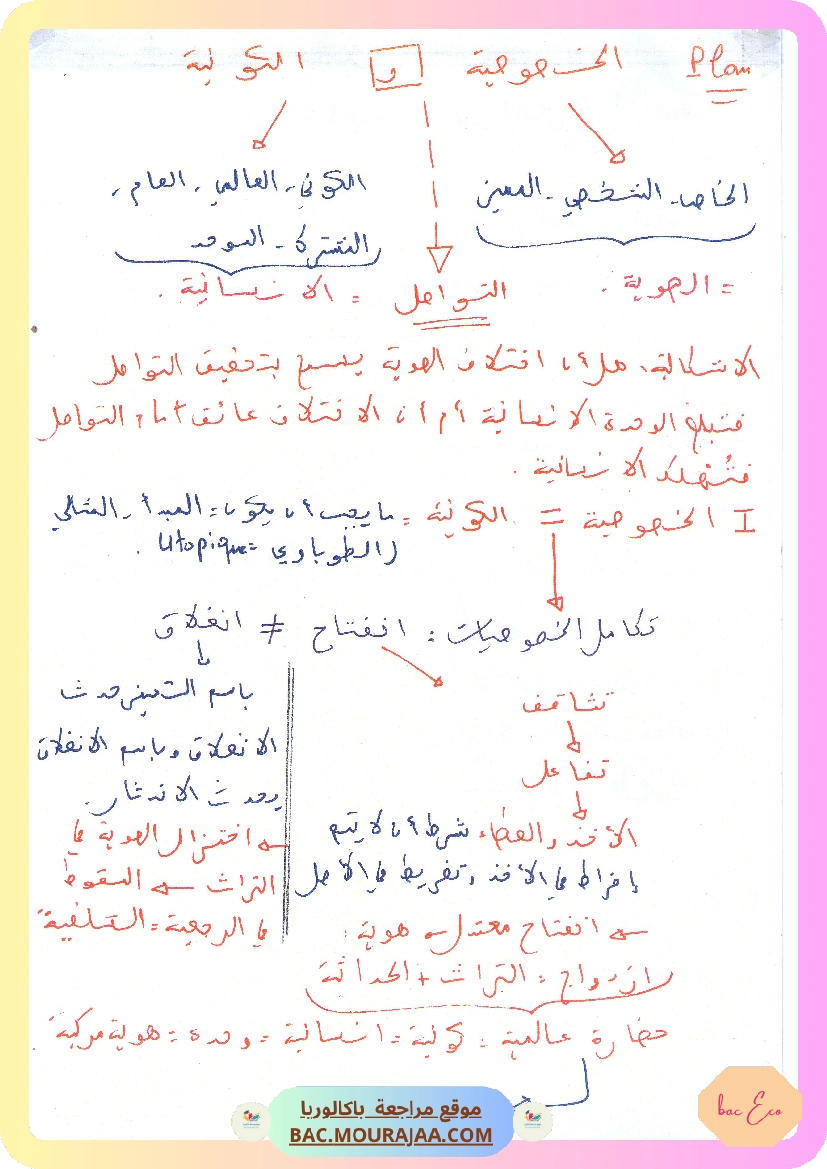 Plan الخصوصية و الكونية
الخاص - الشخصي - المعين
الكوني - العالمي - العام -
المشترك - الموحد
= الهوية .
التواصل = الإنسانية .
الاشكالية: هل أن اختلاف الهوية يسمح بتحقيق التواصل
فتبلغ الوحدة الانسانية أم أن الاختلاف عائق أمام التواصل
فتُستهلك الانسانية .
I الخصوصية = الكونية = ما يجب أن يكون = المبدأ - المثالي
(الطوباوي = utopique .
تكامل الخصوصيات : انفتاح ≠ انغلاق
تثاقف
تفاعل
الأخذ والعطاء شرط أن لا يتم
إفراط في الأخذ وتفريط في الأصل
انفتاح معتدل هوية :
ازدواج = التراث + الحداثة
باسم التميز حدث
الانغلاق وباسم الانغلاق
يحدث الاندثار .
اختزال الهوية في
التراث السقوط
في الرجعية = السلفية
حضارة عالمية = كونية = انسانية = وحدة = هوية مركبة
موقع مراجعة باكالوريا
BAC.MOURAJAA.COM
bac Eco